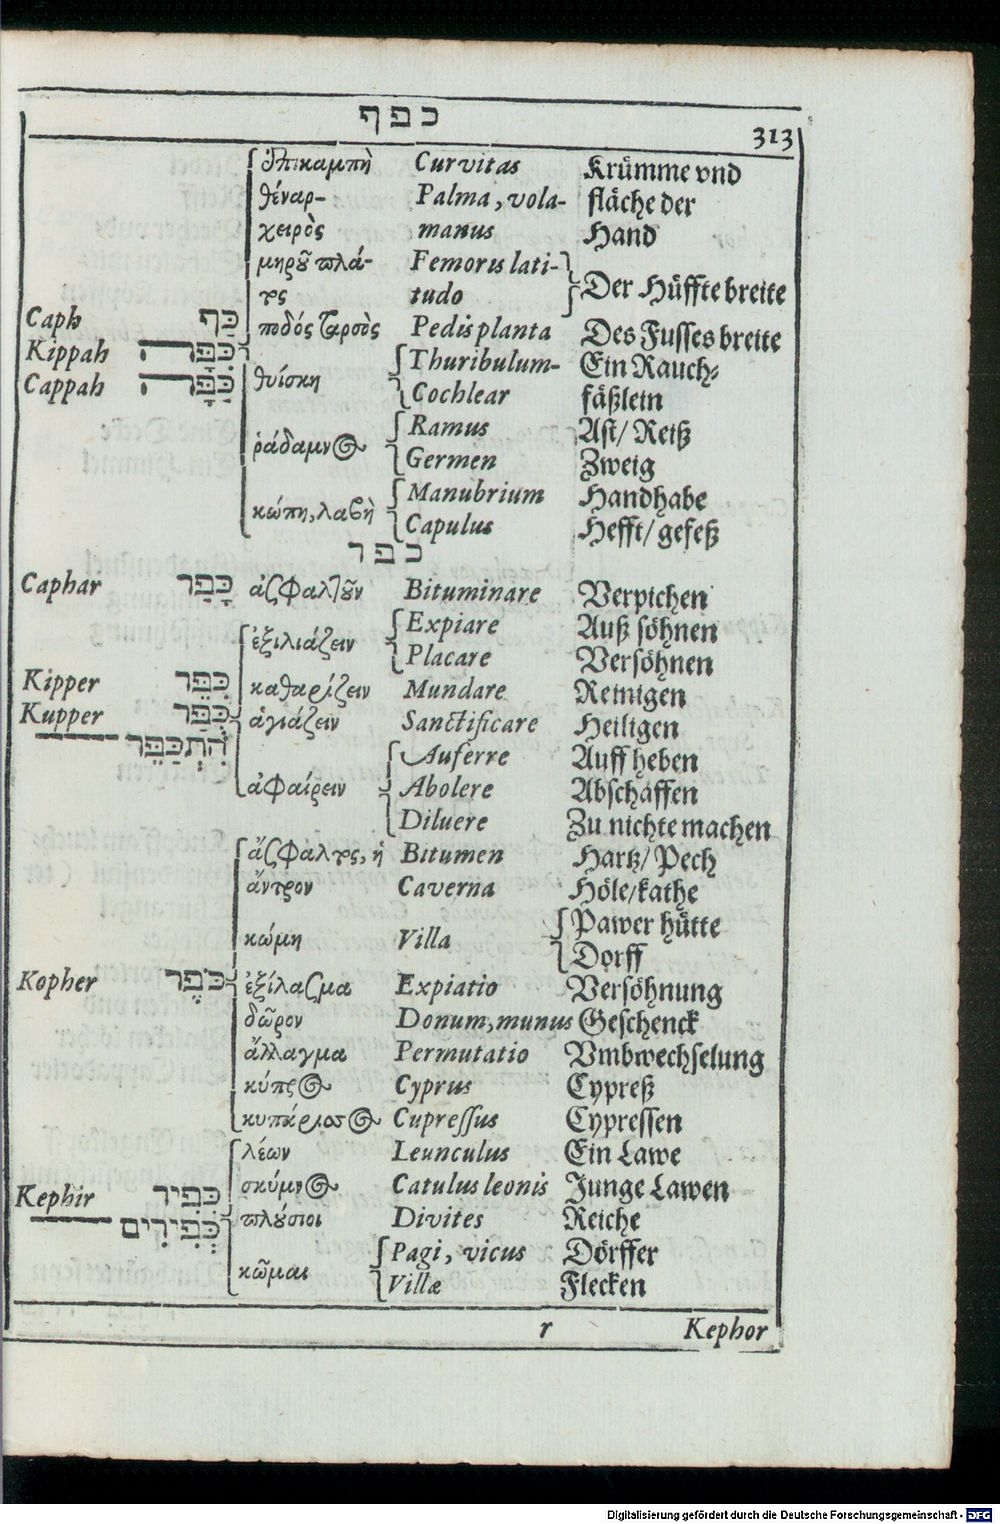 כפף
313
ἐπικαμπὴ Curvitas Krümme vnd
θέναρ- Palma, vola- fläche der
χειρὸς manus Hand
μηροῦ πλά- Femoris lati-
τος tudo Der Hüffte breite
Caph כַּף ποδός ταρσὸς Pedis planta Des Fusses breite
Kippah כִּפָּה Thuribulum- Ein Rauch-
Cappah כַּפָּה θυίσκη Cochlear fäßlein
Ramus Ast/ Reiß
ῥάδαμνος Germen Zweig
Manubrium Handhabe
κώπη, λαβὴ Capulus Hefft/ gefeß
כפר
Caphar כָּפַר ἀσφαλτοῦν Bituminare Verpichen
Expiare Auß söhnen
ἐξιλιάζειν Placare Versöhnen
Kipper כִּפֵּר καθαρίζειν Mundare Reinigen
Kupper כֻּפַּר ἁγιάζειν Sanctificare Heiligen
הִתְכַּפֵּר Auferre Auff heben
ἀφαίρειν Abolere Abschaffen
Diluere Zu nichte machen
ἄσφαλτος, ἡ Bitumen Hartz/ Pech
ἄντρον Caverna Höle/ kathe
Pawer hütte
κώμη Villa Dorff
Kopher כֹּפֶר ἐξίλασμα Expiatio Versöhnung
δῶρον Donum, munus Geschenck
ἄλλαγμα Permutatio Vmbwechselung
κύπρος Cyprus Cypreß
κυπάρισσος Cupressus Cypressen
λέων Leunculus Ein Lawe
Kephir כְּפִיר σκύμνος Catulus leonis Junge Lawen
כְּפִירִים πλούσιοι Divites Reiche
Pagi, vicus Dörffer
κῶμαι Villæ Flecken
r Kephor
Digitalisierung gefördert durch die Deutsche Forschungsgemeinschaft - DFG